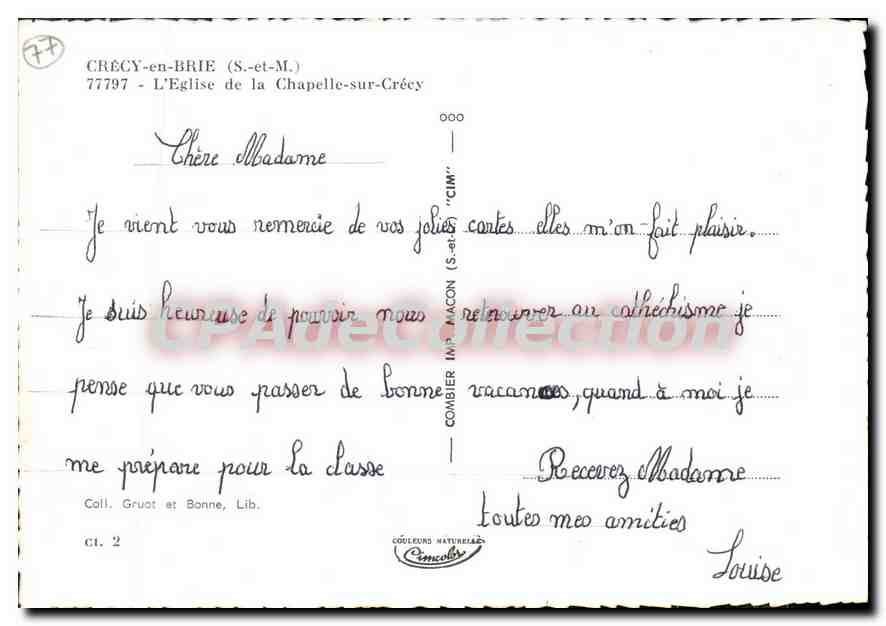 77
CRÉCY-en-BRIE (S.-et-M.)
77797 - L'Eglise de la Chapelle-sur-Crécy
000
Chère Madame
Je vient vous remercie de vos jolies cartes elles m'on fait plaisir.
Je suis heureuse de pouvoir nous retrouver au cathéchisme je
pense que vous passer de bonne vacances, quand à moi je
me prépare pour la classe
Recevez Madame
toutes mes amities
Louise
COMBIER IMP. MACON (S.-et-L.) "CIM"
Coll. Gruot et Bonne, Lib.
Cl. 2
COULEURS NATURELLES
Cimcolor
CPAdeCollection